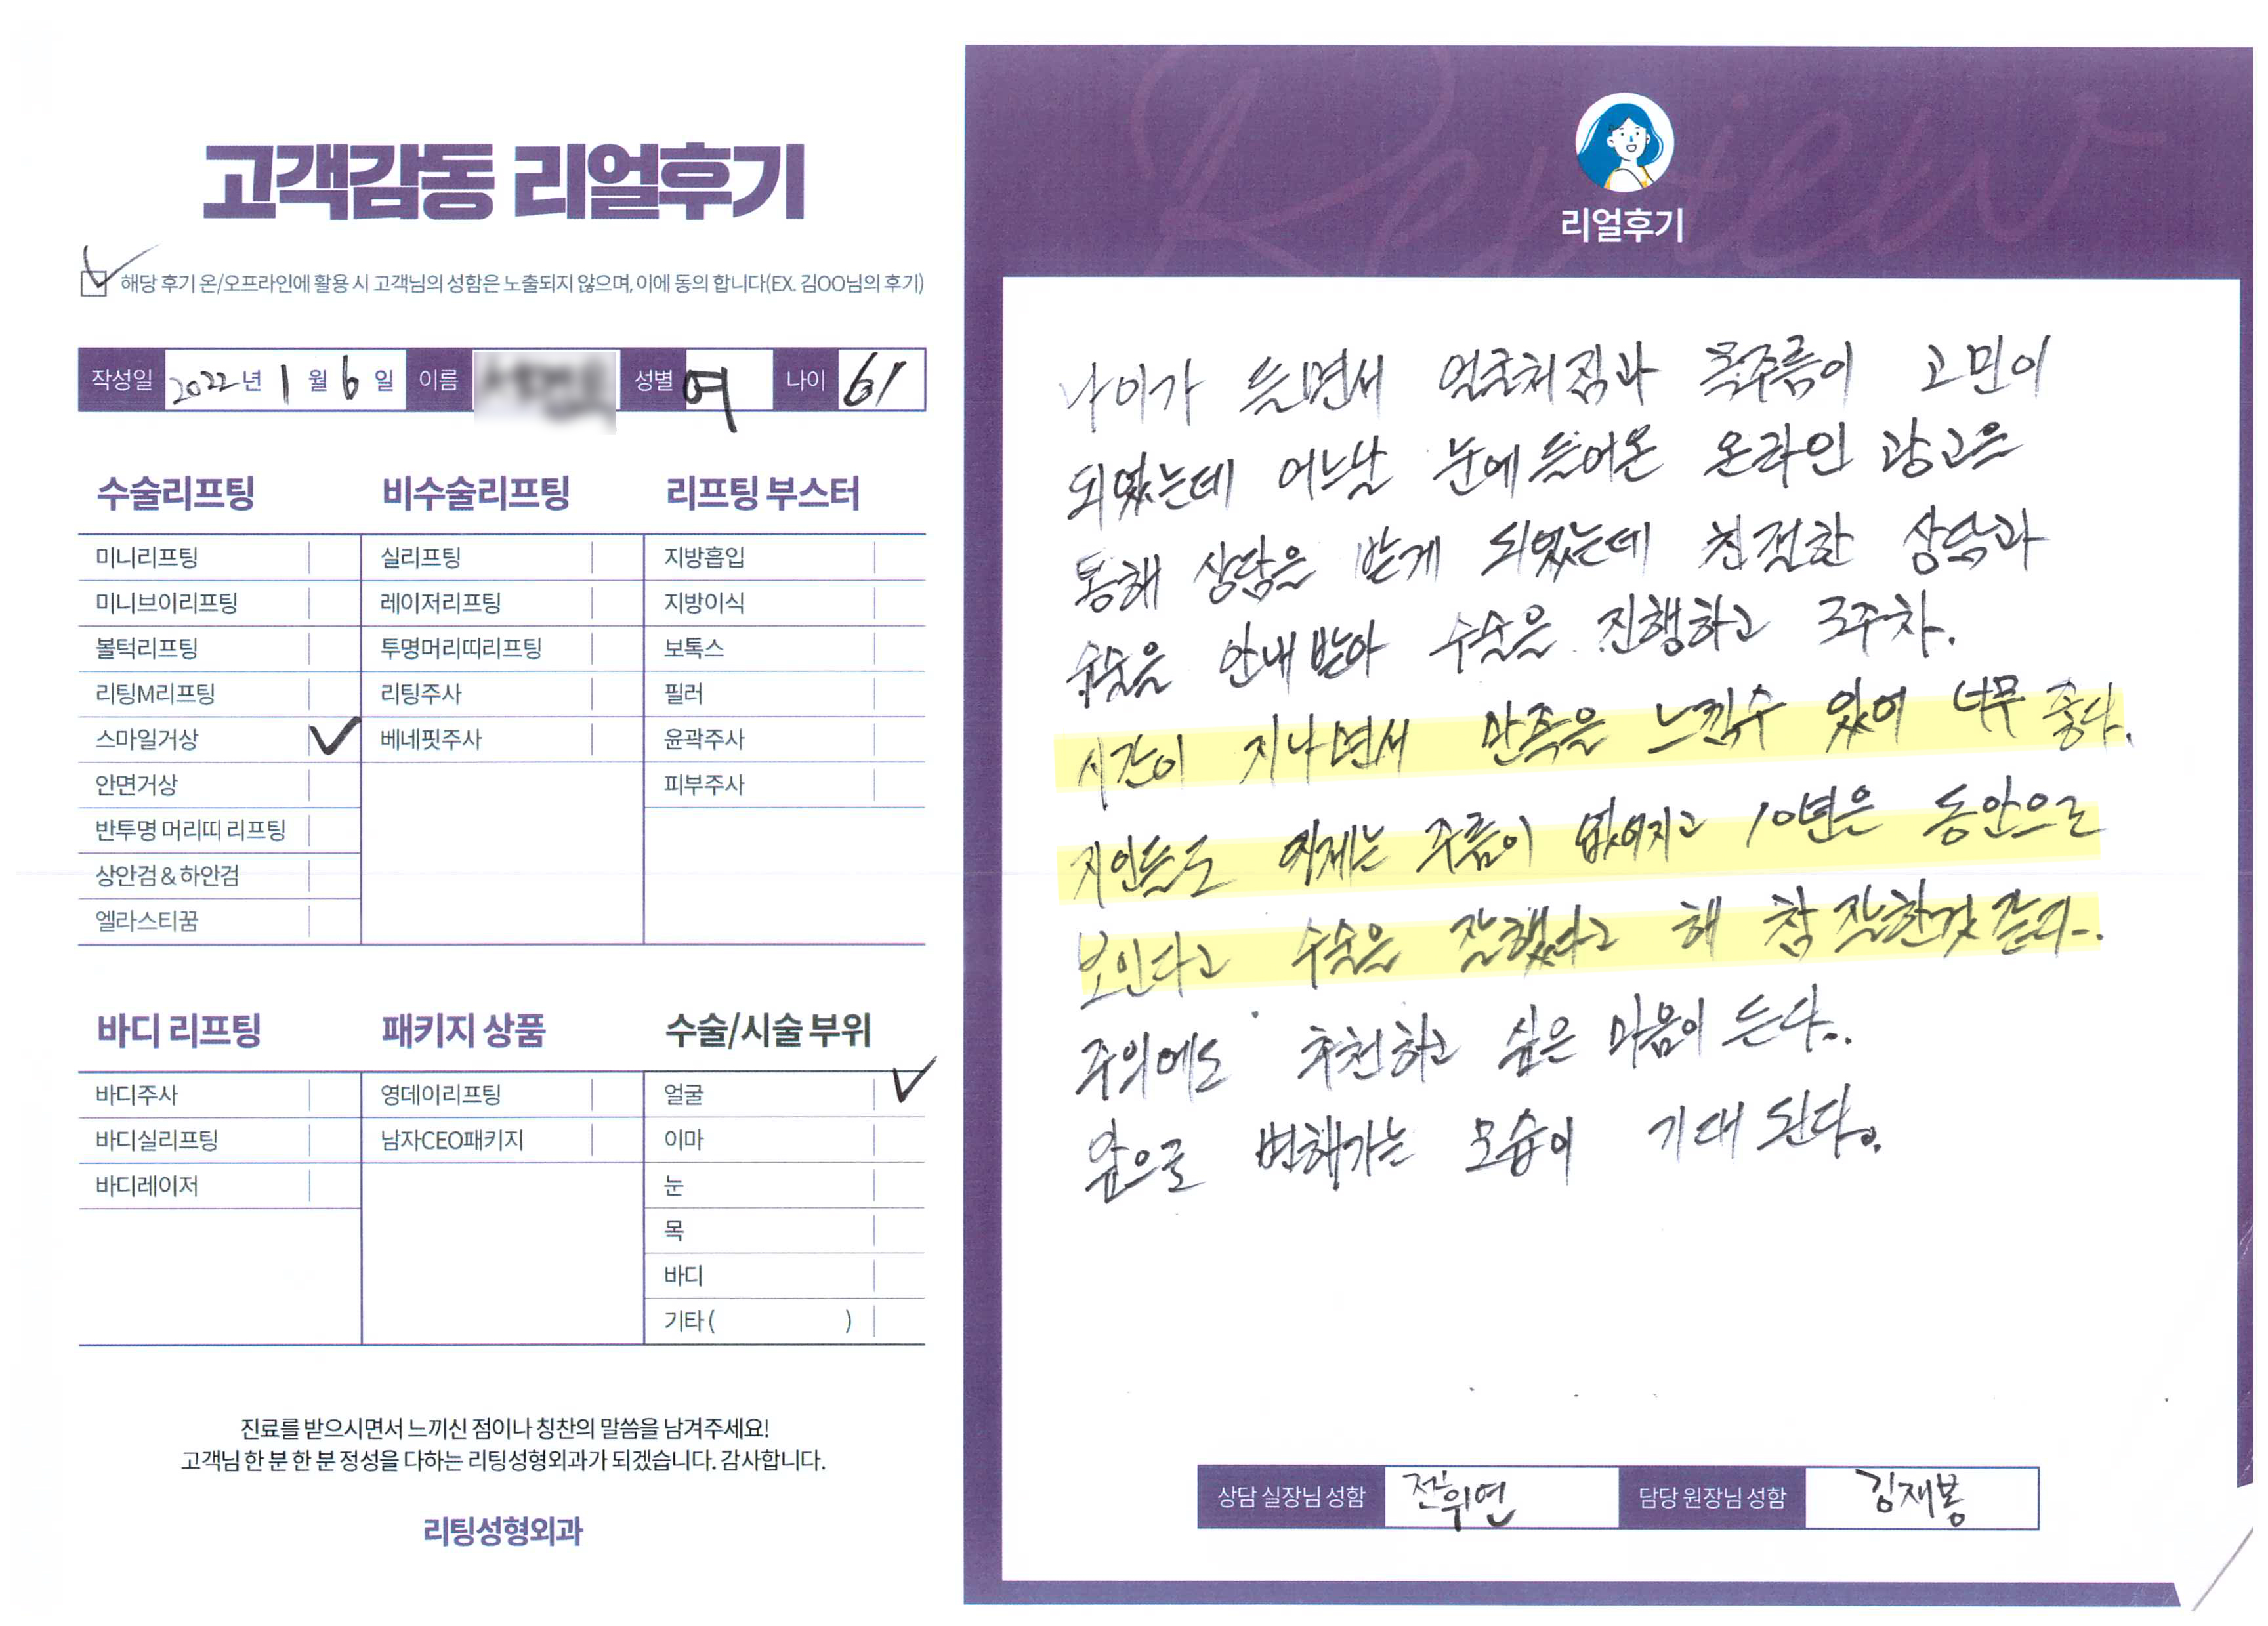 고객감동 리얼후기
해당 후기 온/오프라인에 활용 시 고객님의 성함은 노출되지 않으며, 이에 동의 합니다(EX. 김OO님의 후기)
작성일 2022년 1월 6일 이름 성별 여 나이 61
수술리프팅
미니리프팅
미니브이리프팅
볼턱리프팅
리팅M리프팅
스마일거상
안면거상
반투명 머리띠 리프팅
상안검 & 하안검
엘라스티꿈
비수술리프팅
실리프팅
레이저리프팅
투명머리띠리프팅
리팅주사
베네핏주사
리프팅 부스터
지방흡입
지방이식
보톡스
필러
윤곽주사
피부주사
바디 리프팅
바디주사
바디실리프팅
바디레이저
패키지 상품
영데이리프팅
남자CEO패키지
수술/시술 부위
얼굴
이마
눈
목
바디
기타 ( )
진료를 받으시면서 느끼신 점이나 칭찬의 말씀을 남겨주세요!
고객님 한 분 한 분 정성을 다하는 리팅성형외과가 되겠습니다. 감사합니다.
리팅성형외과
Review
리얼후기
나이가 들면서 얼굴처짐과 목주름이 고민이
되었는데 어느날 눈에 들어온 온라인 광고을
통해 상담을 받게 되었는데 친절한 상담과
수술을 안내 받아 수술을 진행하고 3주차.
시간이 지나면서 만족을 느낄수 있어 너무 좋다.
지인들도 이제는 주름이 없어지고 10년은 동안으로
보인다고 수술을 잘했다고 해 참 잘한것 같다.
주위에도 추천하고 싶은 마음이 든다.
앞으로 변해가는 모습이 기대 된다.
상담 실장님 성함 전위연 담당 원장님 성함 김재봉